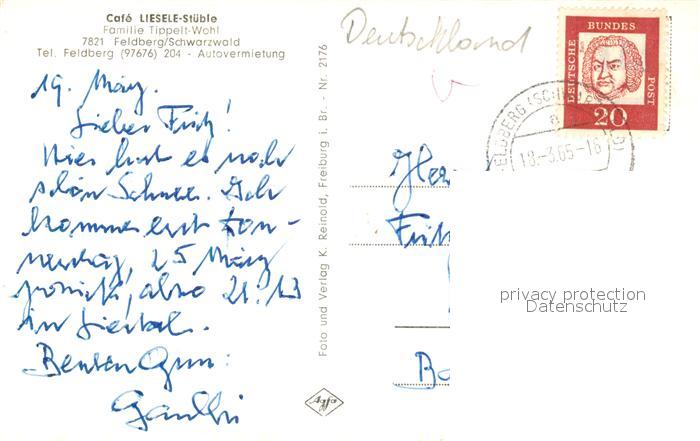 Café LIESELE-Stüble
Familie Tippelt-Wohl
7821 Feldberg/Schwarzwald
Tel. Feldberg (97676) 204 - Autovermietung
19. März.
Lieber Fritz!
Hier hat es noch
schön Schnee. Ich
komme erst Don-
nerstag, 25 März
zurück, also 21.13
in Liestal.
Besten Gruss:
Foto und Verlag K. Reinold, Freiburg i. Br. - Nr. 2176
Agfa
Deutschland
DEUTSCHE BUNDESPOST
20
FELDBERG (SCHWARZW)
a
18.-3.65-18
Her
Fritz
privacy protection
Datenschutz